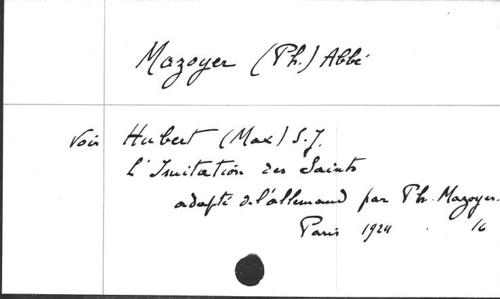 Mazoyer (Ph.) Abbé
Voir Hubert (Max) S.J.
L'Imitation des Saints
adapté de l'allemand par Ph. Mazoyer.
Paris 1924 . 16